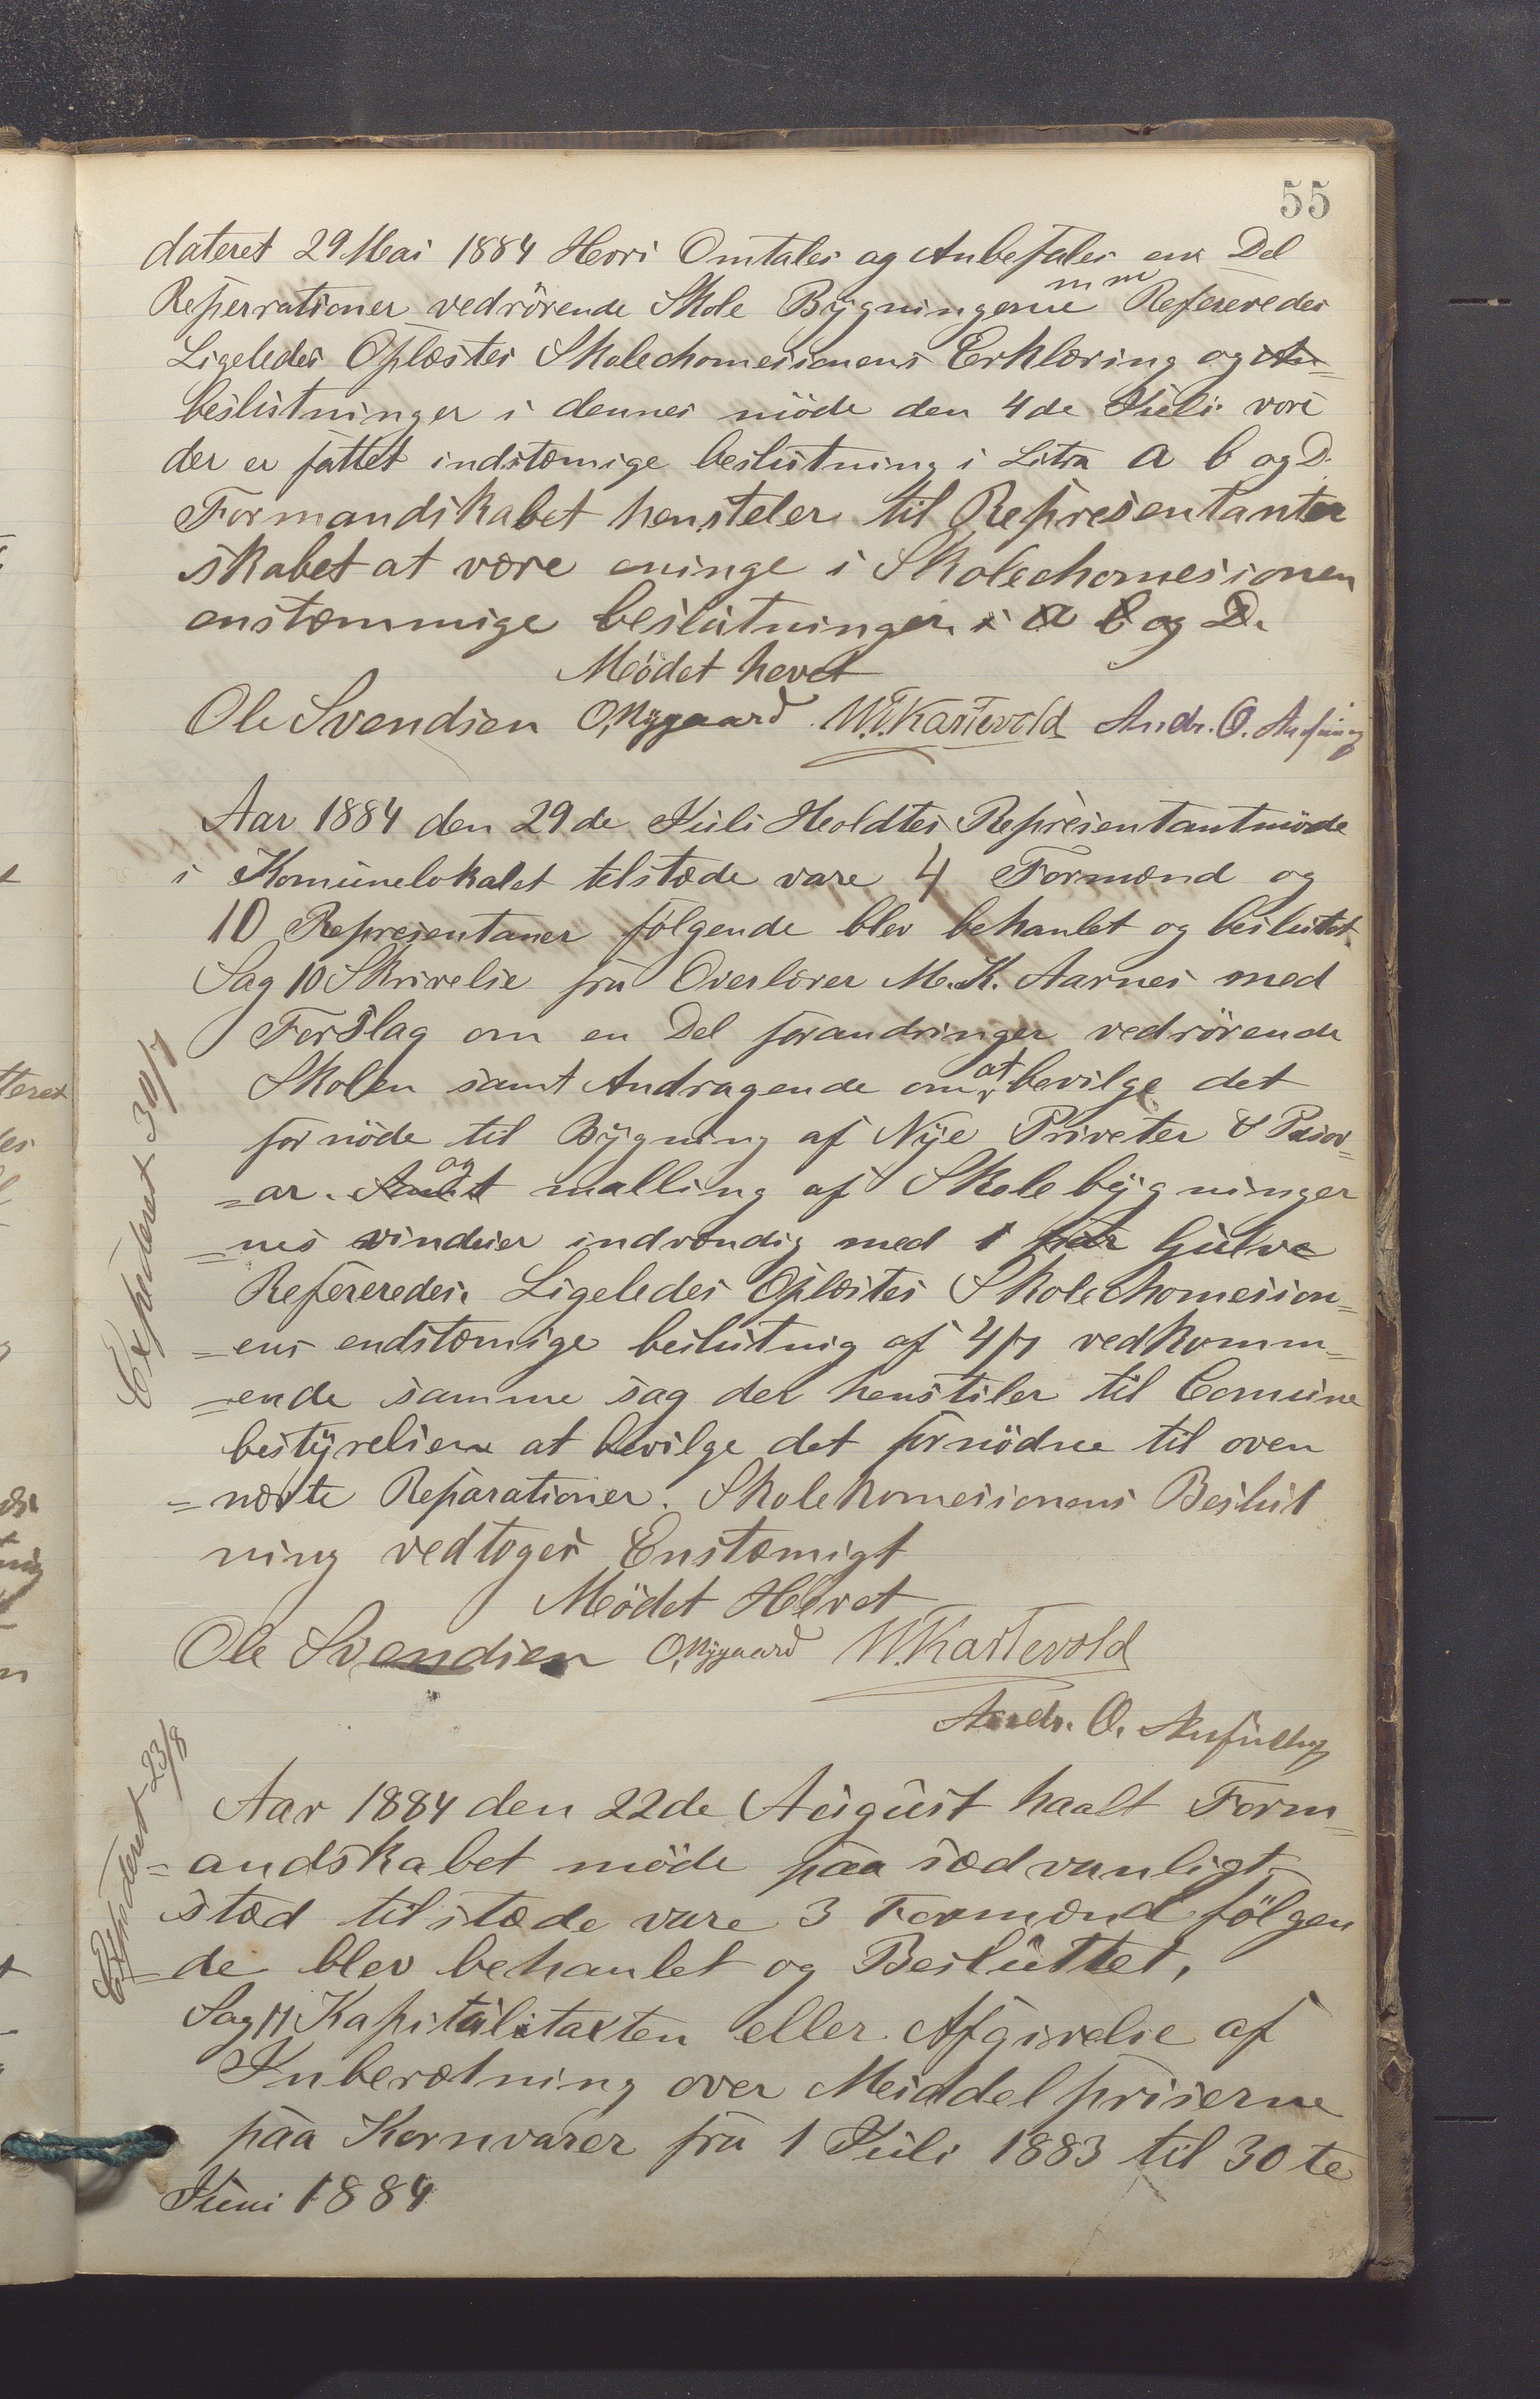 55
dateret 29 Mai 1884 Hvori Omtales og Anbefales en Del
Reperrationer vedrörende Skole Bygningerne m m Refereredes
Ligeledes Oplæstes Skolechomesionens Erklæring og
beslutninger i dennes möde den 4de Juli vori
der er fattet indstæmige beslutning i Litra a b og D.
Formandskabet hensteler til Representanter
skabet at være eninge i Skolechomesionen
enstæmmige beslutninger i a b og D.
Mödet hevet
Ole Svendsen O. Nygaard W. T. Kartevold Andr. O.
Aar 1884 den 29de Juli Heoldtes Representantmöde
i Komunelokalet telstæde vare 4 Formænd og
10 Represientaner fölgende blev behanlet og beslutet
Sag 10 Skrivelse fra Overlærer M. K. Aarnes med
Forslag om en Del forandringer vedrörende
Skolen samt Andragende om at bevilge det
for nöde til Bygning af Nye Priveter & Pisov=
=ar. og malling af Skole bygninger
=nes vinduer indvændig med Gulve
Refereredes. Ligeledes Oplæstes Skolechomesion=
=ens endstæmige beslutnig af 4/7 vedkomm=
=ende samme sag der henstiler til Comune
bestyrelsen at bevilge det fornödne til oven
=nævte Reparationer. Skolekomesionens Beslut
ning vedtoges Enstæmigt
Mödet Hevet
Expederet 30/7
Ole Svendsen O. Nygaard W. Kartevold
Andr. O.
Expederet 23/8
Aar 1884 den 22de August haalt Form=
=andskabet möde paa sædvanligt
stæd tilstæde vare 3 Formænd fölgen
=de blev behanlet og Besluttet,
Sag 11 Kapitalstaxten eller Afgivelse af
Inberætning over Meiddelpriserne
paa Kornvarer fra 1 Juli 1883 til 30te
Juni 1884